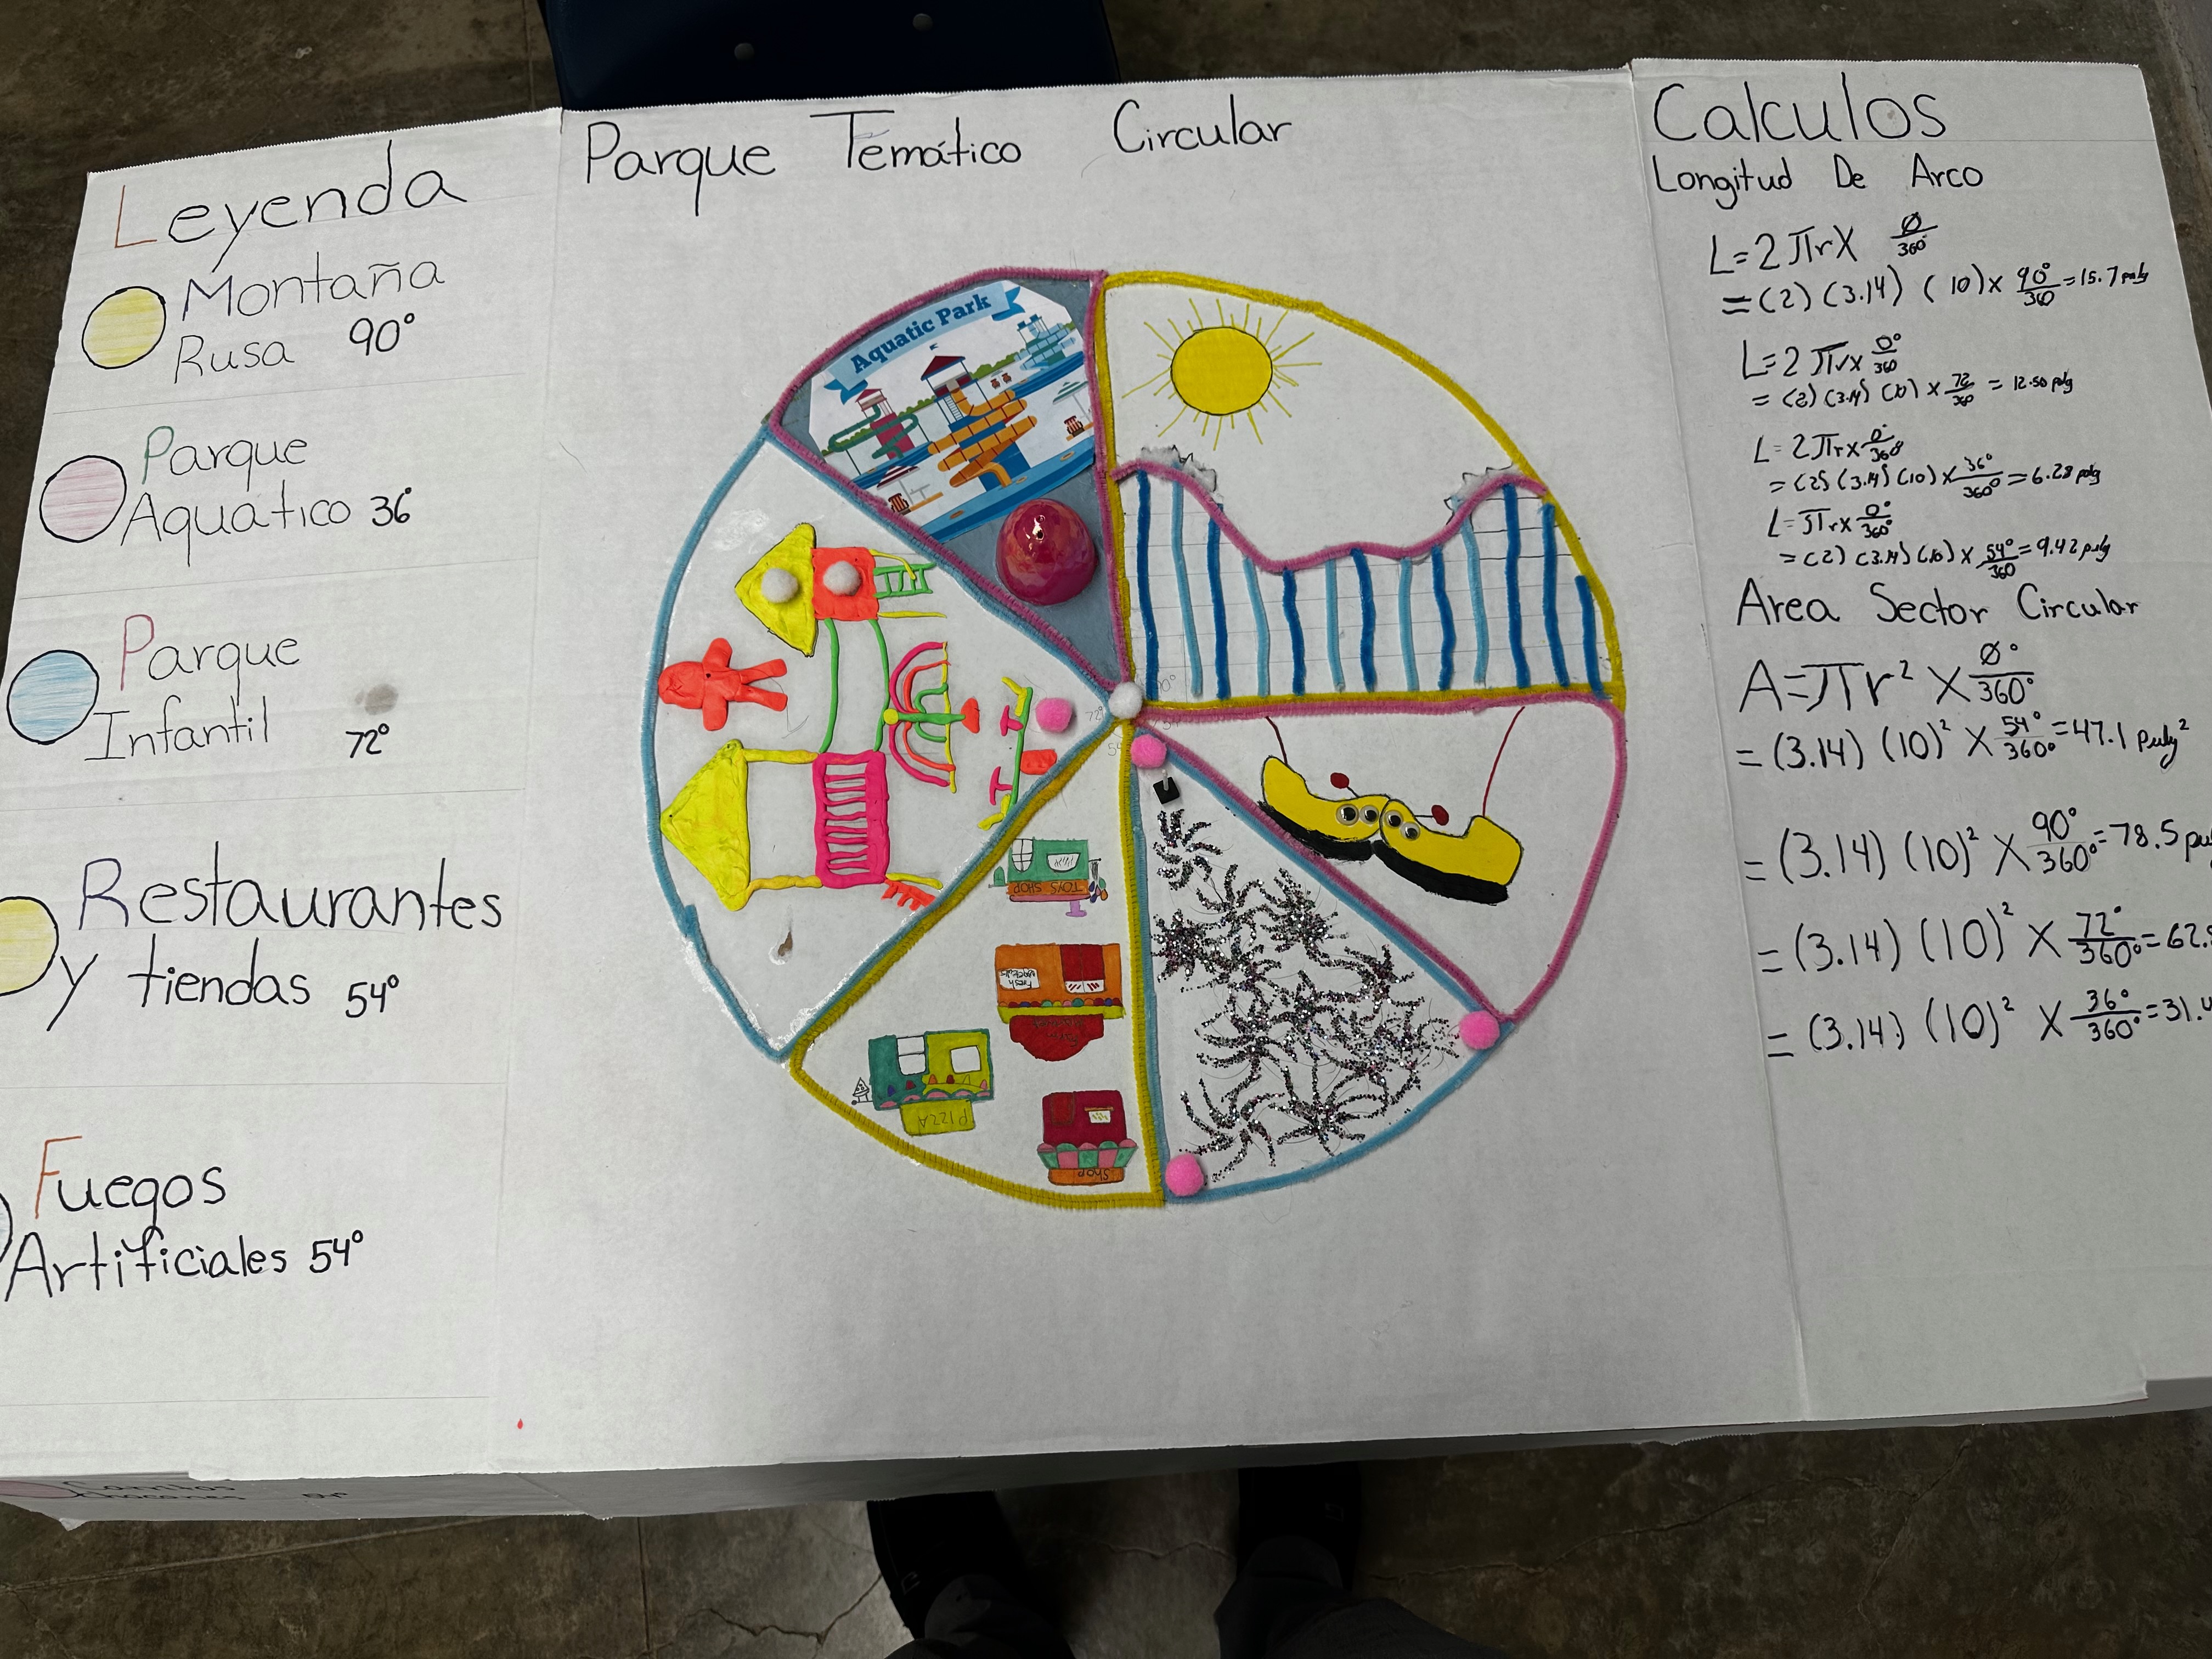 Leyenda
Montaña
Rusa 90°
Parque
Aquatico 36°
Parque
Infantil 72°
Restaurantes
y tiendas 54°
Fuegos
Artificiales 54°
Parque Temático Circular
Aquatic Park
90°
72°
54°
TOYS SHOP
Fresh
PIZZA
SHOP
Calculos
Longitud De Arco
L=2πrX Ø/360°
=(2)(3.14)(10)x 90°/360=15.7 pulg
L=2πrx 0°/360
=(2)(3.14)(10)x 72/360 = 12.50 pulg
L=2πrx 0°/360
=(2)(3.14)(10)x 36°/360°=6.28 pulg
L=πrx 0°/360°
=(2)(3.14)(10)x 54°/360=9.42 pulg
Area Sector Circular
A=πr² X Ø°/360°
=(3.14)(10)² X 54°/360°=47.1 pulg²
=(3.14)(10)² X 90°/360°=78.5 pu
=(3.14)(10)² X 72°/360°=62.
=(3.14)(10)² X 36°/360°=31.4